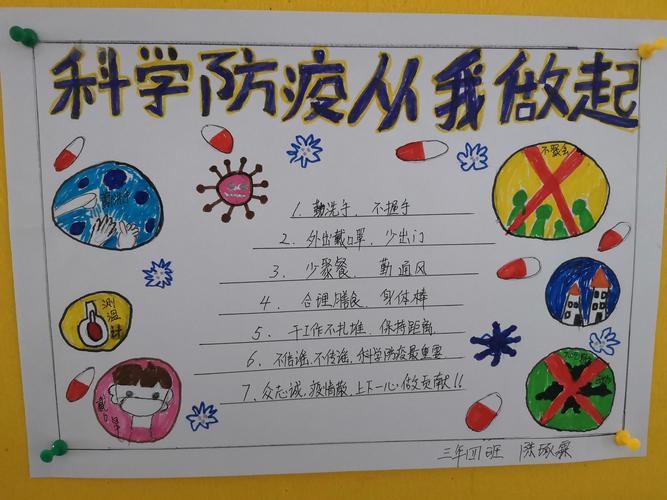 科学防疫从我做起
勤洗手
不聚会
1、勤洗手、不握手
2、外出戴口罩、少出门
3、少聚餐、勤通风
4、合理膳食、身体棒
5、干工作不扎堆、保持距离
6、不信谣、不传谣、科学防疫最重要
7、众志诚,疫情散,上下一心,做贡献!!
测温计
戴口罩
三年四班